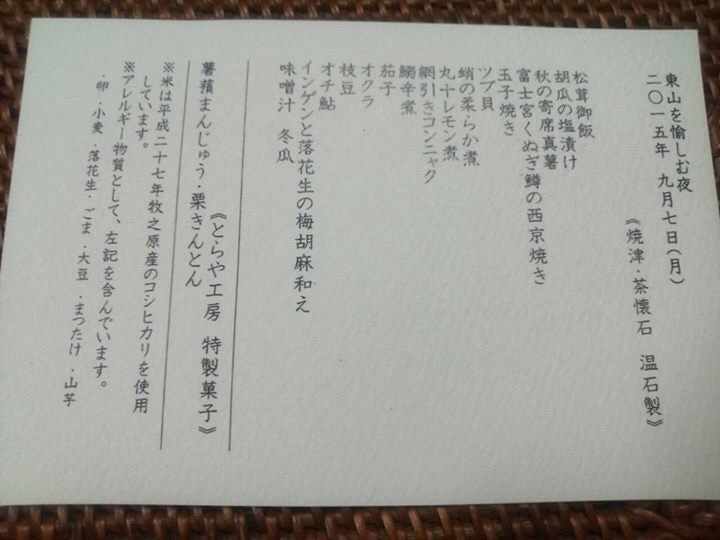 東山を愉しむ夜
二〇一五年 九月七日(月)
《焼津・茶懐石 温石製》
松茸御飯
胡瓜の塩漬け
秋の寄席真薯
富士宮くぬぎ鱒の西京焼き
玉子焼き
ツブ貝
蛸の柔らか煮
丸十レモン煮
網引きコンニャク
鰯辛煮
茄子
オクラ
枝豆
オチ鮎
インゲンと落花生の梅胡麻和え
味噌汁 冬瓜
《とらや工房 特製菓子》
薯蕷まんじゅう・栗きんとん
※米は平成二十七年牧之原産のコシヒカリを使用
しています。
※アレルギー物質として、左記を含んでいます。
・卵・小麦・落花生・ごま・大豆・まつたけ・山芋